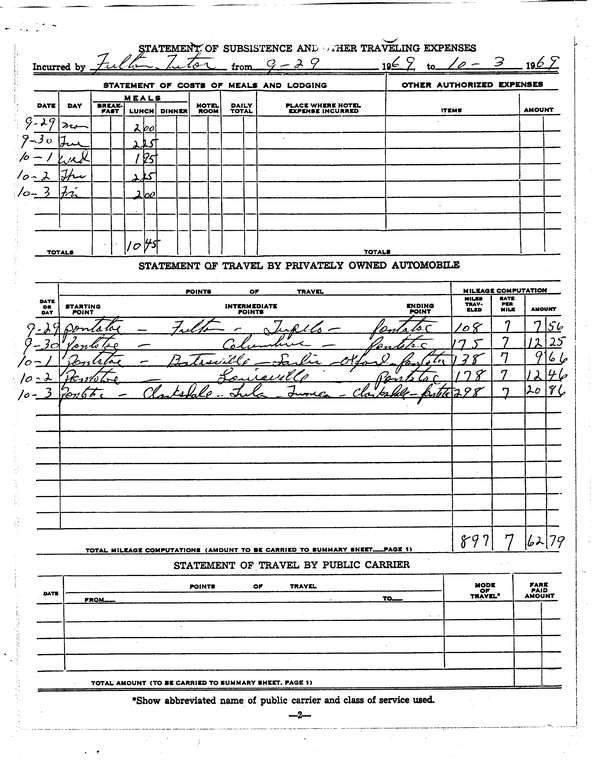 STATEMENT OF SUBSISTENCE AND OTHER TRAVELING EXPENSES
Incurred by Fulton Tutor from 9-29 1969 to 10-3 1969
STATEMENT OF COSTS OF MEALS AND LODGING OTHER AUTHORIZED EXPENSES
DATE DAY MEALS BREAK-FAST LUNCH DINNER HOTEL ROOM DAILY TOTAL PLACE WHERE HOTEL EXPENSE INCURRED ITEMS AMOUNT
9-29 Mon 2 00
9-30 Tue 2 25
10-1 Wed 1 95
10-2 Thu 2 25
10-3 Fri 2 00
TOTALS 10 45 TOTALS
STATEMENT OF TRAVEL BY PRIVATELY OWNED AUTOMOBILE
POINTS OF TRAVEL MILEAGE COMPUTATION
DATE OR DAY STARTING POINT INTERMEDIATE POINTS ENDING POINT MILES TRAV-ELED RATE PER MILE AMOUNT
9-29 Pontotoc - Fulton - Tupelo - Pontotoc 108 7 7 56
9-30 Pontotoc - Columbus - Pontotoc 175 7 12 25
10-1 Pontotoc - Batesville - Sardis - Oxford Pontotoc 138 7 9 66
10-2 Pontotoc - Louisville Pontotoc 178 7 12 46
10-3 Pontotoc - Clarksdale - Lula - Tunica - Clarksdale - Pontotoc 298 7 20 86
TOTAL MILEAGE COMPUTATIONS (AMOUNT TO BE CARRIED TO SUMMARY SHEET—PAGE 1) 897 7 62 79
STATEMENT OF TRAVEL BY PUBLIC CARRIER
DATE POINTS OF TRAVEL MODE OF TRAVEL* FARE PAID AMOUNT
FROM— TO—
TOTAL AMOUNT (TO BE CARRIED TO SUMMARY SHEET, PAGE 1)
*Show abbreviated name of public carrier and class of service used.
—2—